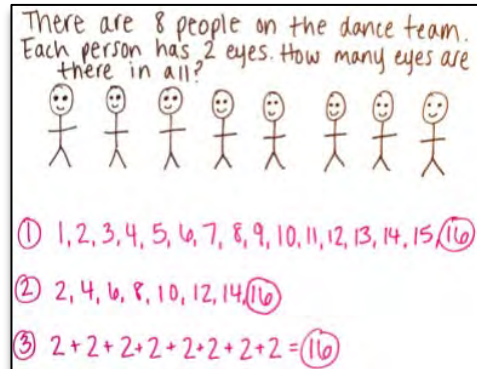 There are 8 people on the dance team.
Each person has 2 eyes. How many eyes are
there in all?
① 1, 2, 3, 4, 5, 6, 7, 8, 9, 10, 11, 12, 13, 14, 15, 16
② 2, 4, 6, 8, 10, 12, 14, 16
③ 2 + 2 + 2 + 2 + 2 + 2 + 2 + 2 = 16